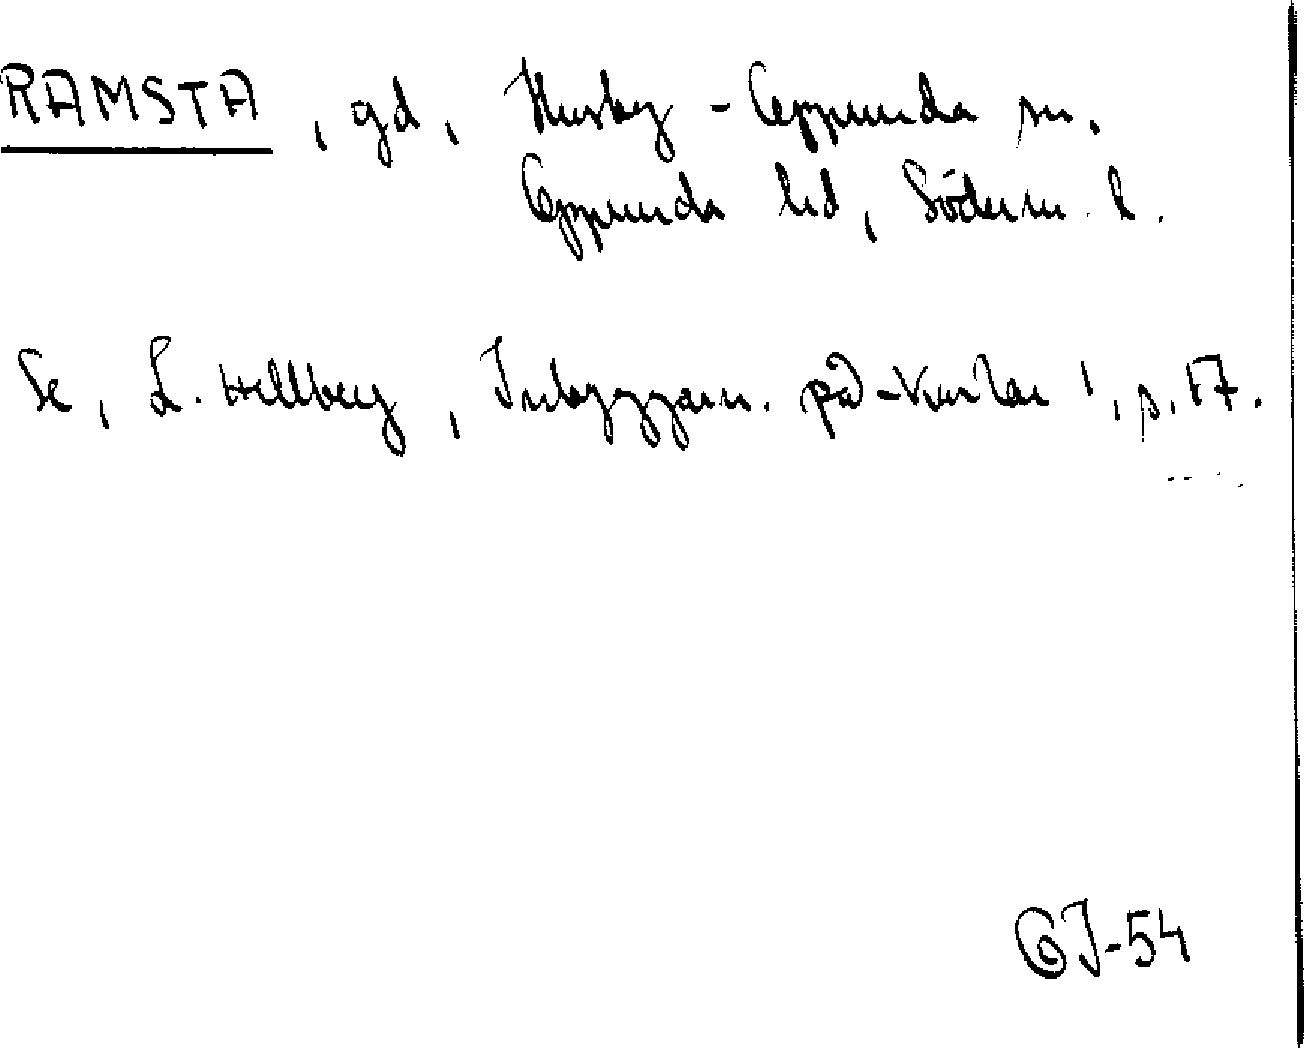 RAMSTA, gd, Husby-Oppunda sn.
Oppunda hd, Söderm. l.
Se, L. Hellberg, Inbyggarn. på -karlar¹, p. 17.
GJ-54